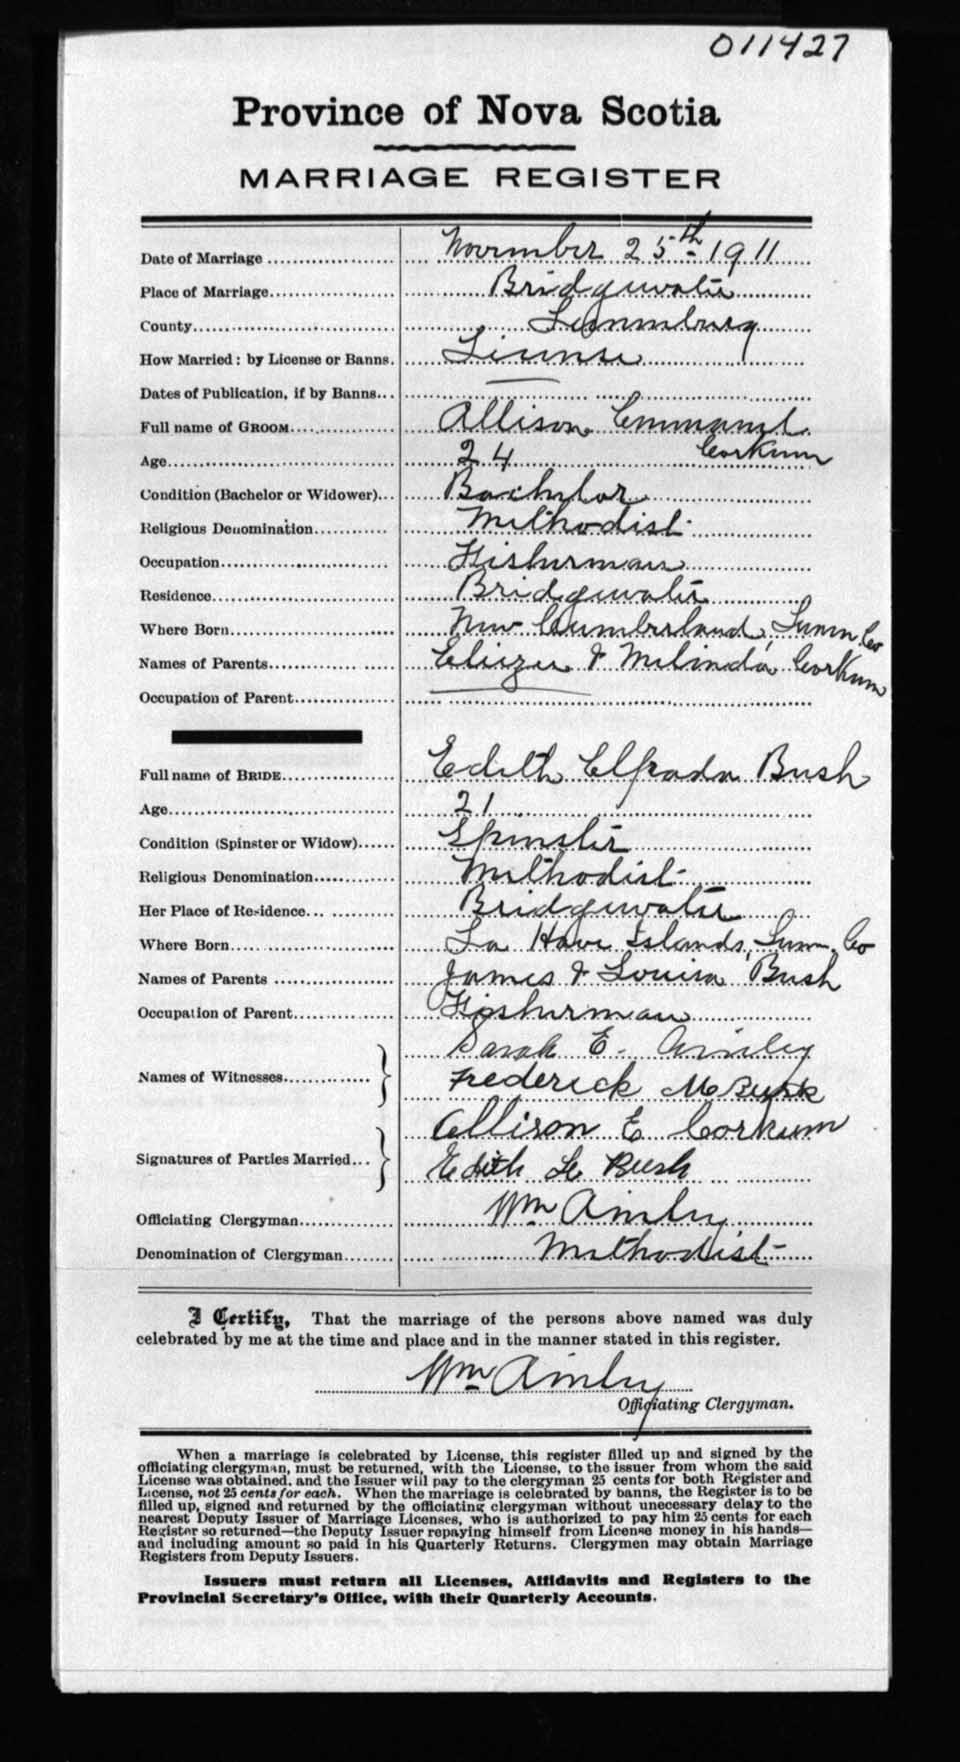 011427
Province of Nova Scotia
MARRIAGE REGISTER
Date of Marriage .................... November 25th 1911
Place of Marriage.................... Bridgewater
County.................... Lunenburg
How Married: by License or Banns. License
Dates of Publication, if by Banns... —
Full name of GROOM.................... Allison Emmanuel
Corkum
Age.................... 24
Condition (Bachelor or Widower)... Bachelor
Religious Denomination.................... Methodist
Occupation.................... Fisherman
Residence.................... Bridgewater
Where Born.................... New Cumberland, Lunen Co
Names of Parents.................... & Melinda Corkum
Occupation of Parent.................... —
Full name of BRIDE.................... Edith Elfrada Bush
Age.................... 21
Condition (Spinster or Widow)...... Spinster
Religious Denomination.................... Methodist
Her Place of Residence... ............ Bridgewater
Where Born.................... La Have Islands, Lunn. Co
Names of Parents .................... James & Louisa Bush
Occupation of Parent.................... Fisherman
Sarah E. Ainley
Names of Witnesses............... Frederick Bush
Allison E Corkum
Signatures of Parties Married... Edith Bush
Officiating Clergyman............... Wm Ainley
Denomination of Clergyman........ Methodist
I Certify, That the marriage of the persons above named was duly
celebrated by me at the time and place and in the manner stated in this register.
Wm Ainley
Officiating Clergyman.
When a marriage is celebrated by License, this register filled up and signed by the
officiating clergyman, must be returned, with the License, to the issuer from whom the said
License was obtained, and the Issuer will pay to the clergyman 25 cents for both Register and
License, not 25 cents for each. When the marriage is celebrated by banns, the Register is to be
filled up, signed and returned by the officiating clergyman without unnecessary delay to the
nearest Deputy Issuer of Marriage Licenses, who is authorized to pay him 25 cents for each
Register so returned—the Deputy Issuer repaying himself from License money in his hands—
and including amount so paid in his Quarterly Returns. Clergymen may obtain Marriage
Registers from Deputy Issuers.
Issuers must return all Licenses, Affidavits and Registers to the
Provincial Secretary's Office, with their Quarterly Accounts.